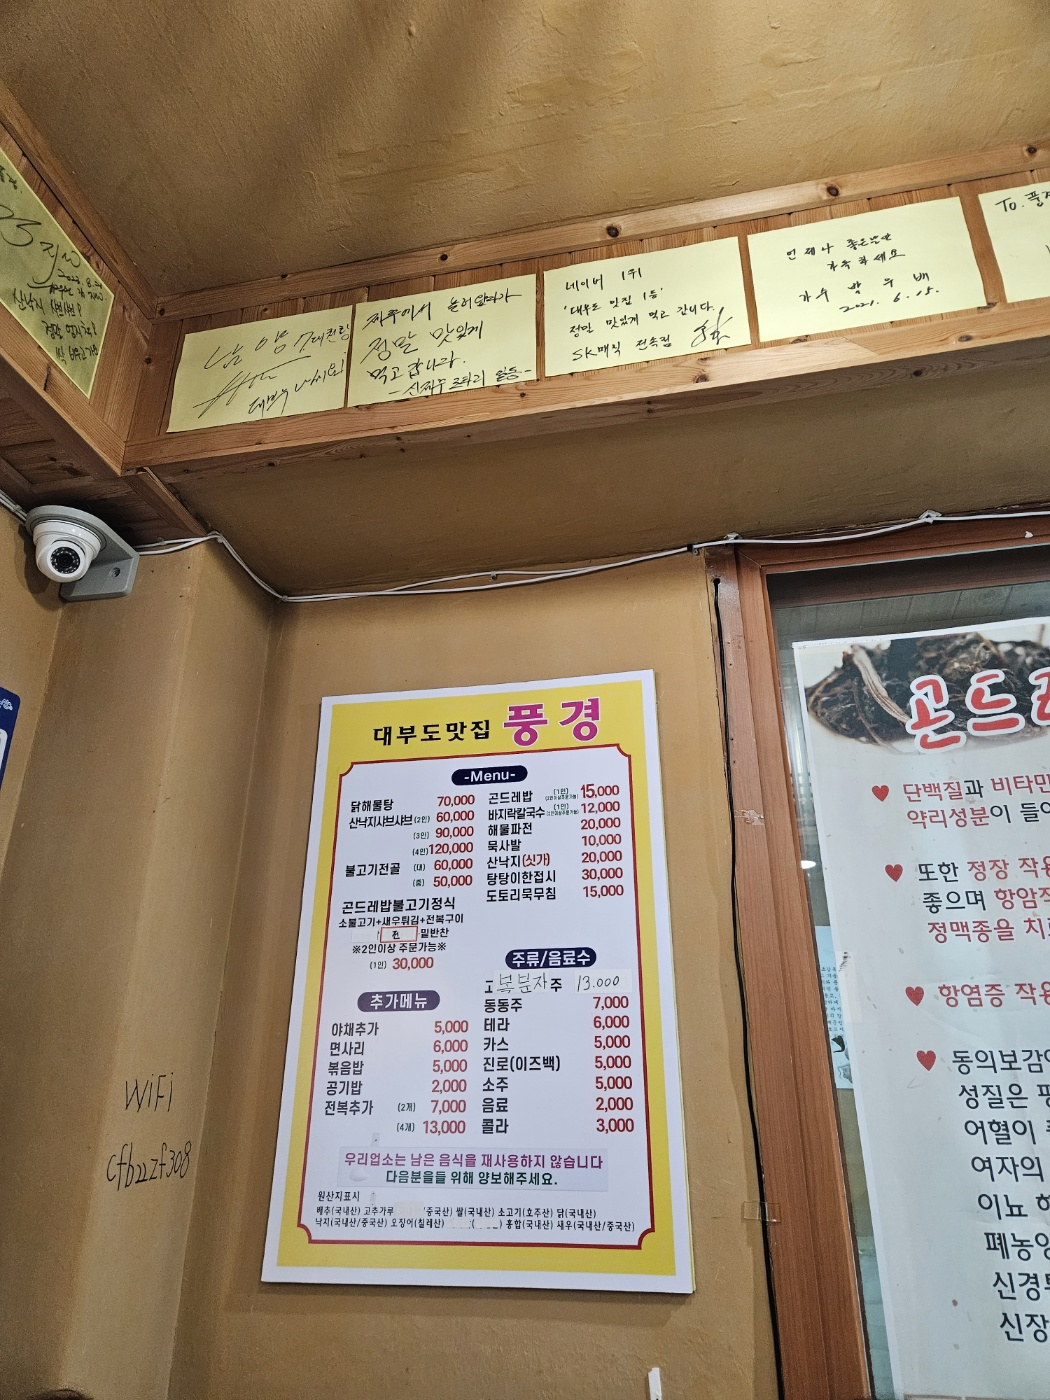 네이버 1위
'대부도 맛집 1등'
정말 맛있게 먹고 갑니다.
SK매직 전속점
언제나 좋은 날만
가득하세요
가수 박우배
2021. 6. 15.
To. 풍
제주에서 놀러왔다가
정말 맛있게
먹고 갑니다.
대부도맛집 풍경
-Menu-
닭해물탕 70,000
산낙지샤브샤브 (2인) 60,000
(3인) 90,000
(4인) 120,000
불고기전골 (대) 60,000
(중) 50,000
곤드레밥불고기정식
소불고기+새우튀김+전복구이
전 밑반찬
※2인이상 주문가능※
(1인) 30,000
곤드레밥 (1인) 15,000
바지락칼국수 (1인) 12,000
해물파전 20,000
묵사발 10,000
산낙지(싯가) 20,000
탕탕이한접시 30,000
도토리묵무침 15,000
추가메뉴
야채추가 5,000
면사리 6,000
볶음밥 5,000
공기밥 2,000
전복추가 (2개) 7,000
(4개) 13,000
주류/음료수
고 복분자주 13.000
동동주 7,000
테라 6,000
카스 5,000
진로(이즈백) 5,000
소주 5,000
음료 2,000
콜라 3,000
우리업소는 남은 음식을 재사용하지 않습니다
다음분을들 위해 양보해주세요.
원산지표시
배추(국내산) 고추가루 중국산) 쌀(국내산) 소고기(호주산) 닭(국내산)
낙지(국내산/중국산) 오징어(칠레산) 홍합(국내산) 새우(국내산/중국산)
WiFi
cfb22zf308
곤드레
단백질과 비타민
약리성분이 들어
또한 정장 작용
좋으며 항암작
정맥종을 치료
항염증 작용
동의보감에
성질은 평
어혈이
여자의
이뇨
폐농양
신경통
신장